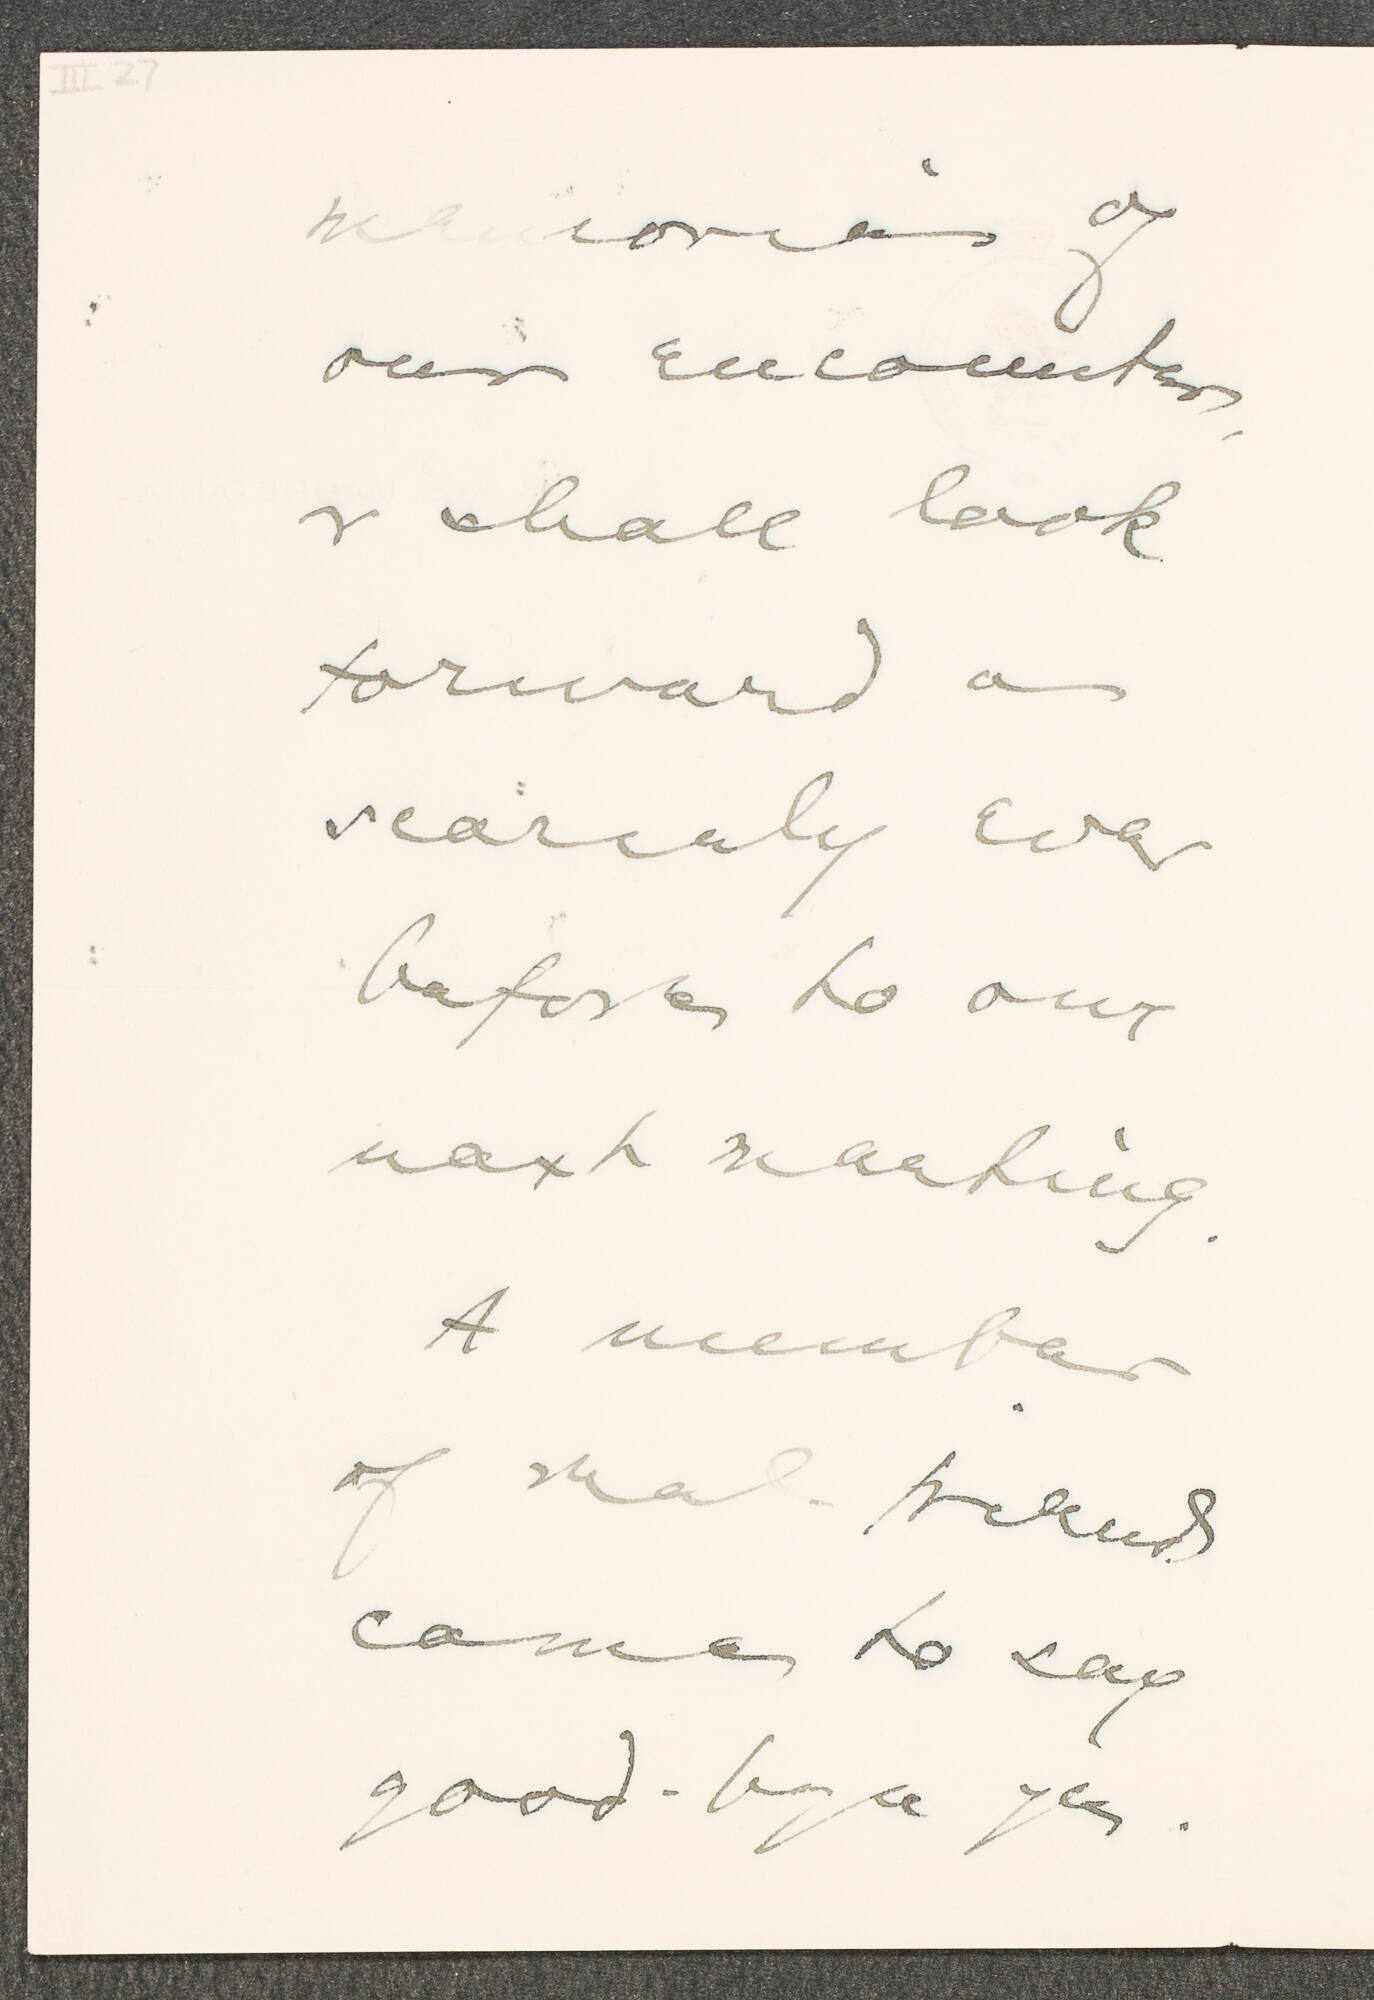 III 27
memories of
our encounter,
& shall look
forward as
scarcely ever
before to our
next meeting.
A member
of mal- friends
came to say
good-bye yes.